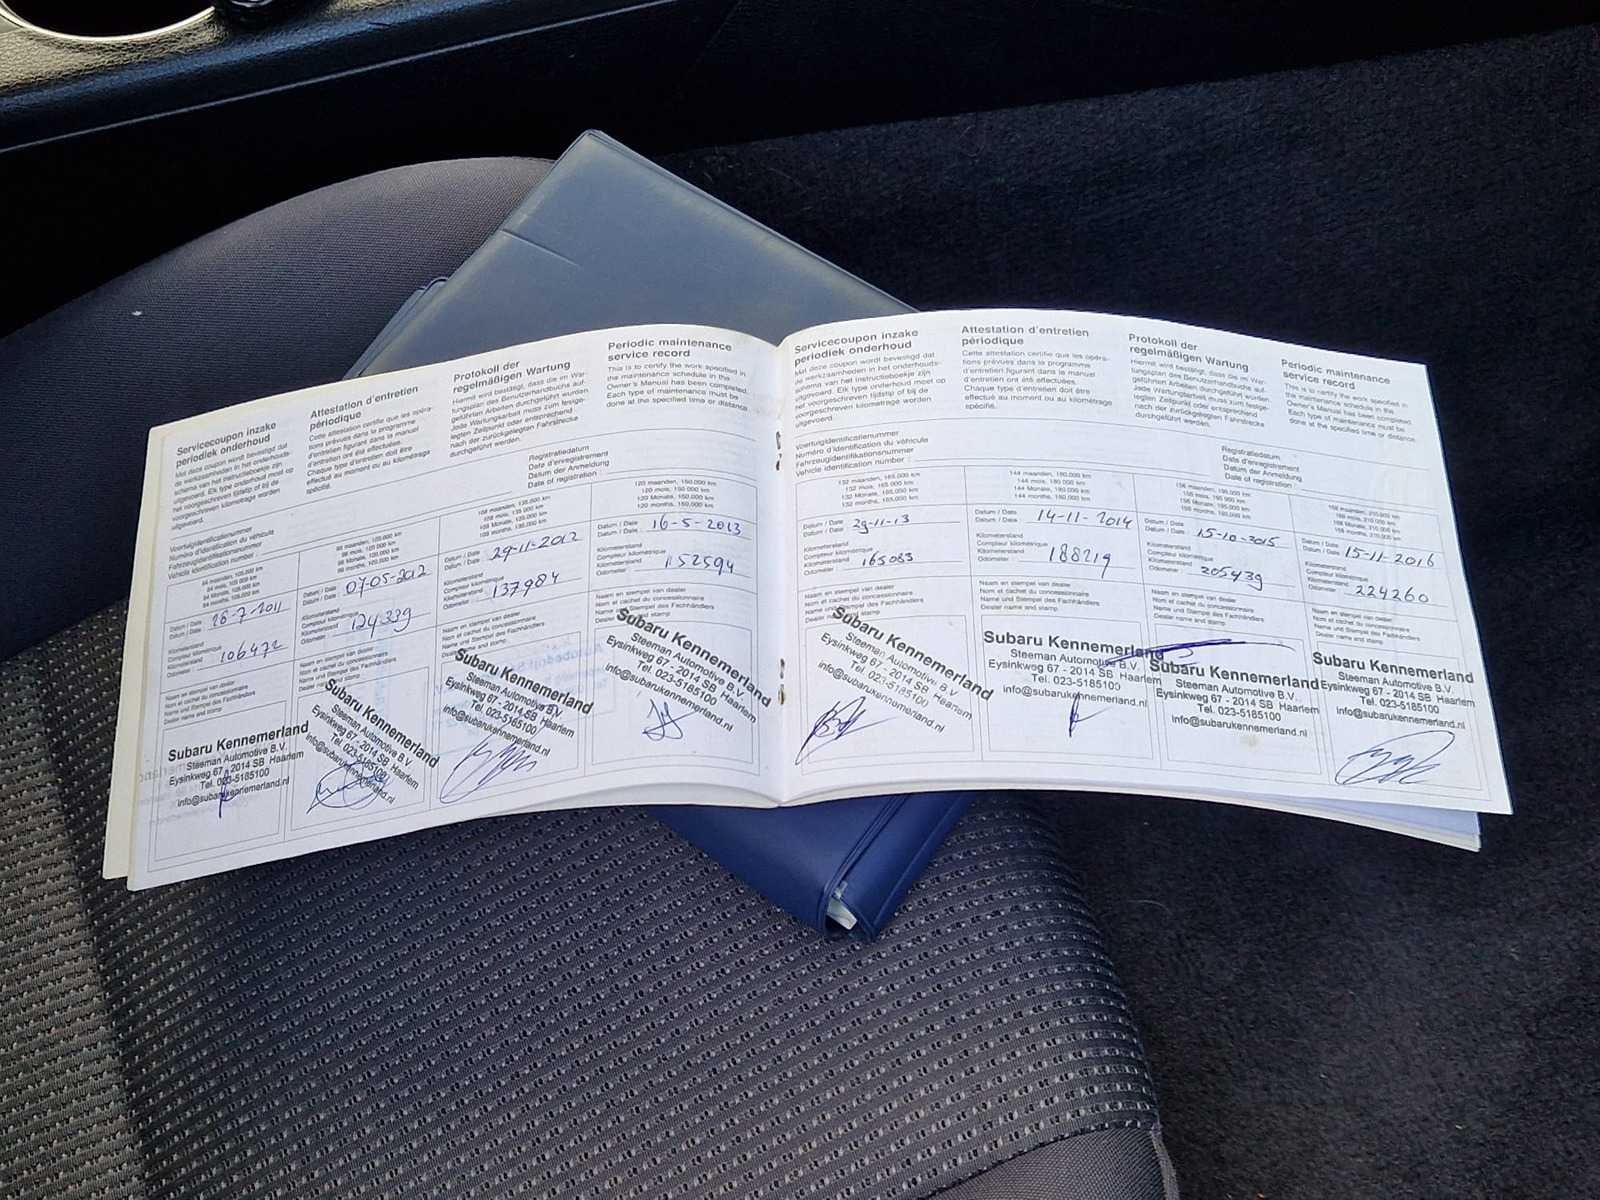 Servicecoupon inzake
periodiek onderhoud
Met deze coupon wordt bevestigd dat
de werkzaamheden in het onderhouds-
schema van het instructieboekje zijn
uitgevoerd. Elk type onderhoud moet op
het voorgeschreven tijdstip of bij de
voorgeschreven kilometrage worden
uitgevoerd.
Attestation d'entretien
périodique
Cette attestation certifie que les opéra-
tions prévues dans le programme
d'entretien figurant dans le manuel
d'entretien ont été effectuées.
Chaque type d'entretien doit être
effectué au moment ou au kilométrage
spécifié.
Protokoll der
regelmäßigen Wartung
Hiermit wird bestätigt, dass die im War-
tungsplan des Benutzerhandbuchs auf-
geführten Arbeiten durchgeführt wurden.
Jede Wartungsarbeit muss zum festge-
legten Zeitpunkt oder entsprechend
nach der zurückgelegten Fahrstrecke
durchgeführt werden.
Periodic maintenance
service record
This is to certify the work specified in
the maintenance schedule in the
Owner's Manual has been completed.
Each type of maintenance must be
done at the specified time or distance.
Voertuigidentificatienummer
Numéro d'identification du véhicule
Fahrzeugidentifikationsnummer
Vehicle identification number :
Registratiedatum
Date d'enregistrement
Datum der Anmeldung
Date of registration :
84 maanden, 105.000 km
84 mois, 105 000 km
84 Monate, 105.000 km
84 months, 105.000 km
Datum / Date
Datum / Date : 26-7-2011
Kilometerstand
Compteur kilométrique
Kilometerstand
Odometer : 106472
Naam en stempel van dealer
Nom et cachet du concessionnaire
Name und Stempel des Fachhändlers
Dealer name and stamp
Subaru Kennemerland
Steeman Automotive B.V.
Eysinkweg 67 - 2014 SB Haarlem
Tel. 023-5185100
info@subarukennemerland.nl
96 maanden, 120.000 km
96 mois, 120 000 km
96 Monate, 120.000 km
96 months, 120.000 km
Datum / Date
Datum / Date : 07-05-2012
Kilometerstand
Compteur kilométrique
Kilometerstand
Odometer : 124339
Naam en stempel van dealer
Nom et cachet du concessionnaire
Name und Stempel des Fachhändlers
Dealer name and stamp
Subaru Kennemerland
Steeman Automotive B.V.
Eysinkweg 67 - 2014 SB Haarlem
Tel. 023-5185100
info@subarukennemerland.nl
108 maanden, 135.000 km
108 mois, 135 000 km
108 Monate, 135.000 km
108 months, 135.000 km
Datum / Date
Datum / Date : 29-11-2012
Kilometerstand
Compteur kilométrique
Kilometerstand
Odometer : 137984
Naam en stempel van dealer
Nom et cachet du concessionnaire
Name und Stempel des Fachhändlers
Dealer name and stamp
Subaru Kennemerland
Steeman Automotive B.V.
Eysinkweg 67 - 2014 SB Haarlem
Tel. 023-5185100
info@subarukennemerland.nl
120 maanden, 150.000 km
120 mois, 150.000 km
120 Monate, 150.000 km
120 months, 150.000 km
Datum / Date
Datum / Date : 16-5-2013
Kilometerstand
Compteur kilométrique
Kilometerstand
Odometer : 152594
Naam en stempel van dealer
Nom et cachet du concessionnaire
Name und Stempel des Fachhändlers
Dealer name and stamp
Subaru Kennemerland
Steeman Automotive B.V.
Eysinkweg 67 - 2014 SB Haarlem
Tel. 023-5185100
info@subarukennemerland.nl
Servicecoupon inzake
periodiek onderhoud
Met deze coupon wordt bevestigd dat
de werkzaamheden in het onderhouds-
schema van het instructieboekje zijn
uitgevoerd. Elk type onderhoud moet op
het voorgeschreven tijdstip of bij de
voorgeschreven kilometrage worden
uitgevoerd.
Attestation d'entretien
périodique
Cette attestation certifie que les opéra-
tions prévues dans le programme
d'entretien figurant dans le manuel
d'entretien ont été effectuées.
Chaque type d'entretien doit être
effectué au moment ou au kilométrage
spécifié.
Protokoll der
regelmäßigen Wartung
Hiermit wird bestätigt, dass die im War-
tungsplan des Benutzerhandbuchs auf-
geführten Arbeiten durchgeführt wurden.
Jede Wartungsarbeit muss zum festge-
legten Zeitpunkt oder entsprechend
nach der zurückgelegten Fahrstrecke
durchgeführt werden.
Periodic maintenance
service record
This is to certify the work specified in
the maintenance schedule in the
Owner's Manual has been completed.
Each type of maintenance must be
done at the specified time or distance.
Voertuigidentificatienummer
Numéro d'identification du véhicule
Fahrzeugidentifikationsnummer
Vehicle identification number :
Registratiedatum
Date d'enregistrement
Datum der Anmeldung
Date of registration :
132 maanden, 165.000 km
132 mois, 165 000 km
132 Monate, 165.000 km
132 months, 165.000 km
Datum / Date
Datum / Date : 29-11-13
Kilometerstand
Compteur kilométrique
Kilometerstand
Odometer : 165083
Naam en stempel van dealer
Nom et cachet du concessionnaire
Name und Stempel des Fachhändlers
Dealer name and stamp
Subaru Kennemerland
Steeman Automotive B.V.
Eysinkweg 67 - 2014 SB Haarlem
Tel. 023-5185100
info@subarukennemerland.nl
144 maanden, 180.000 km
144 mois, 180.000 km
144 Monate, 180.000 km
144 months, 180.000 km
Datum / Date
Datum / Date : 14-11-2014
Kilometerstand
Compteur kilométrique
Kilometerstand
Odometer : 188219
Naam en stempel van dealer
Nom et cachet du concessionnaire
Name und Stempel des Fachhändlers
Dealer name and stamp
Subaru Kennemerland
Steeman Automotive B.V.
Eysinkweg 67 - 2014 SB Haarlem
Tel. 023-5185100
info@subarukennemerland.nl
156 maanden, 195.000 km
156 mois, 195.000 km
156 Monate, 195.000 km
156 months, 195.000 km
Datum / Date
Datum / Date : 15-10-2015
Kilometerstand
Compteur kilométrique
Kilometerstand
Odometer : 205439
Naam en stempel van dealer
Nom et cachet du concessionnaire
Name und Stempel des Fachhändlers
Dealer name and stamp
Subaru Kennemerland
Steeman Automotive B.V.
Eysinkweg 67 - 2014 SB Haarlem
Tel. 023-5185100
info@subarukennemerland.nl
168 maanden, 210.000 km
168 mois, 210.000 km
168 Monate, 210.000 km
168 months, 210.000 km
Datum / Date
Datum / Date : 15-11-2016
Kilometerstand
Compteur kilométrique
Kilometerstand
Odometer : 224260
Naam en stempel van dealer
Nom et cachet du concessionnaire
Name und Stempel des Fachhändlers
Dealer name and stamp
Subaru Kennemerland
Steeman Automotive B.V.
Eysinkweg 67 - 2014 SB Haarlem
Tel. 023-5185100
info@subarukennemerland.nl